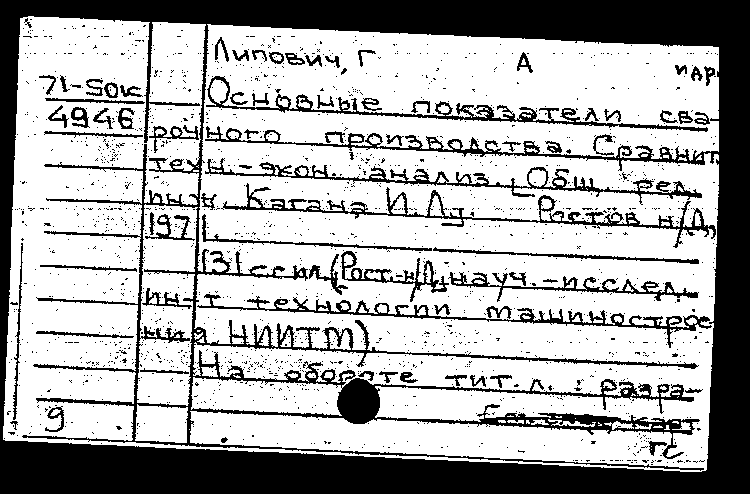 Липович, Г А
71-50к
4946
Основные показатели сва-
рочного производства. Сравнит.
техн.-экон. анализ. [Общ. ред.
инж. Кагана И. Ш. Ростов н/Д,
1971.
131 с с ил. (Рост.-н/Д. науч.-исслед.
ин-т технологии машинострое
ния НИИТМ)
На обороте тит. л. : разра-
карт
9